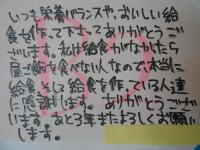 いつも栄養バランスや、おいしい給
食を作って下さってありがとうござ
ざいます。私は給食がなかたら
昼ご飯を食べない人なので本当に
給食そして給食を作っている人達
に感謝します。ありがとうござい
ます。あと3年またよろしくお願い
します。